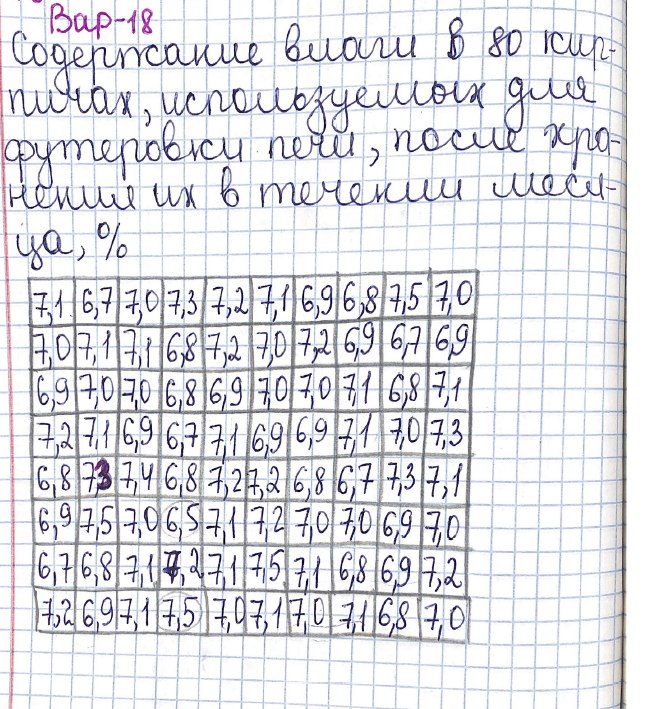 Вар-18
Содержание влаги в 80 кир-
пичах, используемых для
футеровки печи, после хра-
нения их в течении меся-
ца, %
7,1 6,7 7,0 7,3 7,2 7,1 6,9 6,8 7,5 7,0
7,0 7,1 7,1 6,8 7,2 7,0 7,2 6,9 6,7 6,9
6,9 7,0 7,0 6,8 6,9 7,0 7,0 7,1 6,8 7,1
7,2 7,1 6,9 6,7 7,1 6,9 6,9 7,1 7,0 7,3
6,8 7,3 7,4 6,8 7,2 7,2 6,8 6,7 7,3 7,1
6,9 7,5 7,0 6,5 7,1 7,2 7,0 7,0 6,9 7,0
6,7 6,8 7,1 7,2 7,1 7,5 7,1 6,8 6,9 7,2
7,2 6,9 7,1 7,5 7,0 7,1 7,0 7,1 6,8 7,0